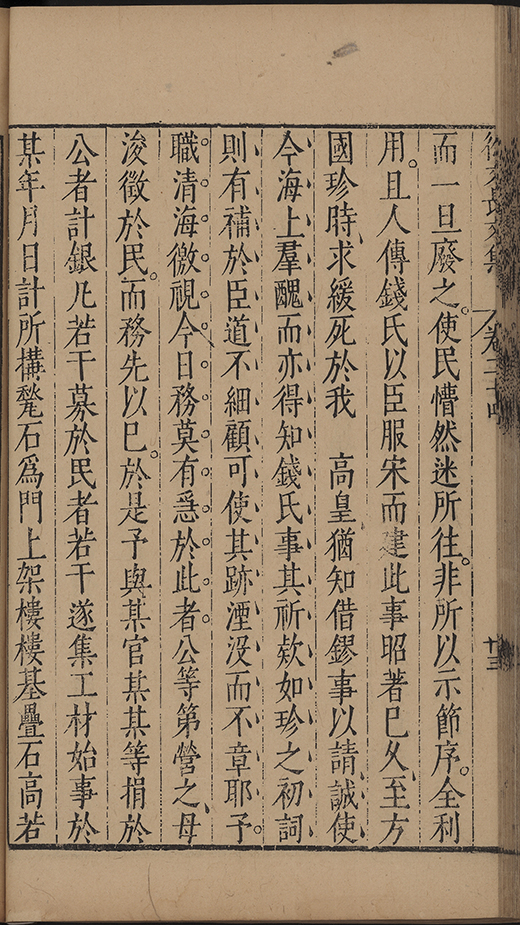 徐文長文集 卷二十四 十三
而一旦廢之。使民懵然迷所往。非所以示節序。全利
用。且人傳錢氏以臣服宋而建此事昭著已久、至方
國珍時、求緩死於我 高皇猶知借鏐事以請、誠使
今海上羣醜而亦得知錢氏事其祈欵如珍之初詞
則有補於臣道不細顧可使其跡湮沒而不章耶予
職清海徼視今日務莫有急於此者公等第營之、母
浚徵於民。而務先以已。於是予與某官某某等捐於
公者計銀凡若干募於民者若干遂集工材始事於
某年月日計所搆甃石爲門上架樓樓基疊石高若